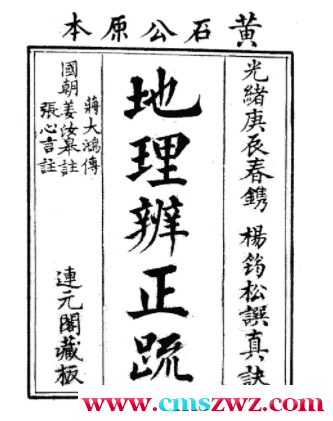 黃石公原本
光緒庚辰春鐫 楊筠松譔真訣
地理辨正疏
蔣大鴻傳
國朝姜汝皋註
張心言註
連元閣藏板
www.cmszwz.com